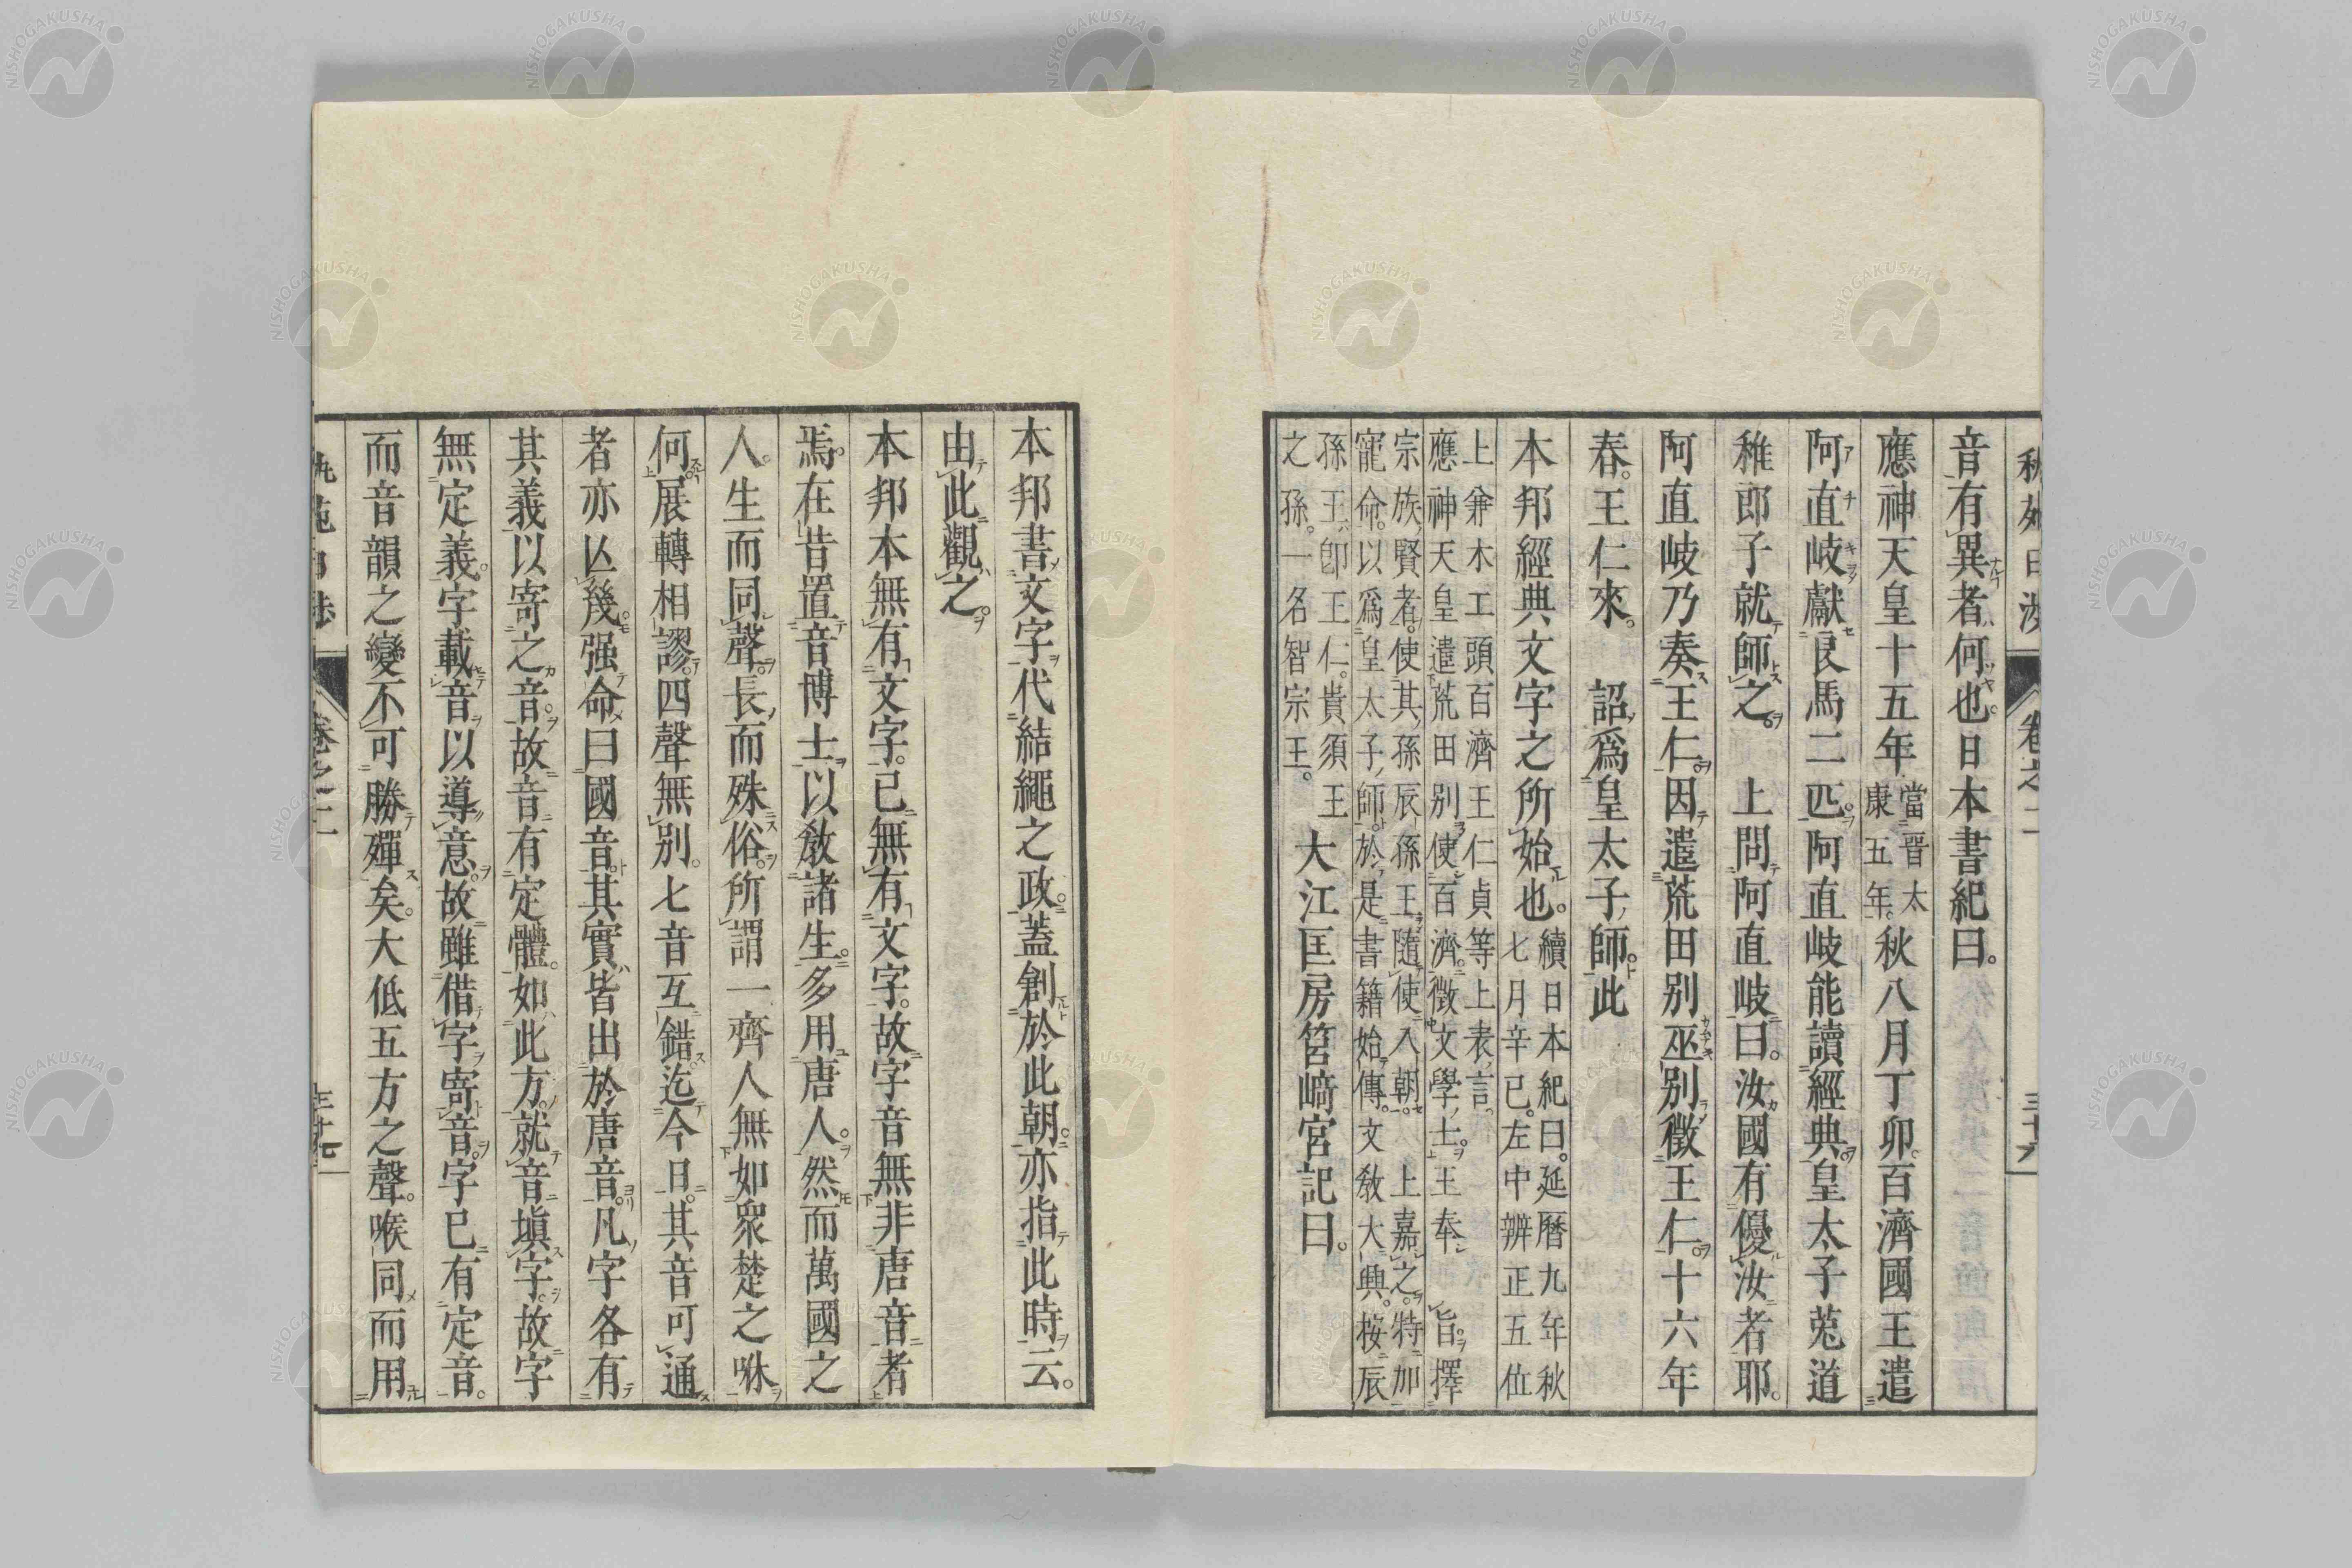 音有異者何也日本書紀曰。
應神天皇十五年當晋太康五年。秋八月丁卯。百濟國王遣
阿直岐獻良馬二匹。阿直岐能讀經典。皇太子菟道
稚郎子就師之。　上問阿直岐曰。汝國有優汝者耶。
阿直岐乃奏王仁。因遣荒田別巫別徵王仁。十六年
春。王仁來。　詔爲皇太子師。此
本邦經典文字之所始也。續日本紀曰。延曆九年秋
七月辛巳。左中辨正五位
上兼木工頭百濟王仁貞等上表言。
應神天皇遣荒田別使百濟。徵文學士。王奉　旨。擇
宗族賢者。使其孫辰孫王隨使入朝。　上嘉之。特加
寵命。以爲皇太子師。於是書籍始傳。文教大興。桉辰
孫王、卽王仁。貴須王
之孫。一名智宗王。大江匡房筥﨑宮記曰。
本邦書文字代結繩之政。蓋創於此朝。亦指此時云。
由此觀之。
本邦本無有文字。已無有文字。故字音無非唐音者
焉。在昔置音博士以敎諸生。多用唐人。然而萬國之
人。生而同聲。長而殊俗。所謂一齊人無如衆楚之咻
何。展轉相謬。四聲無別。七音互錯。迄今日。其音可通
者亦亾幾。强命曰國音。其實皆出於唐音。凡字各有
其義。以寄之音。故音有定體。如此方。就音塡字。故字
無定義。字載音以導意。故雖借字寄音。字已有定音。
而音韻之變不可勝殫矣。大低五方之聲。喉同而用
卷之二